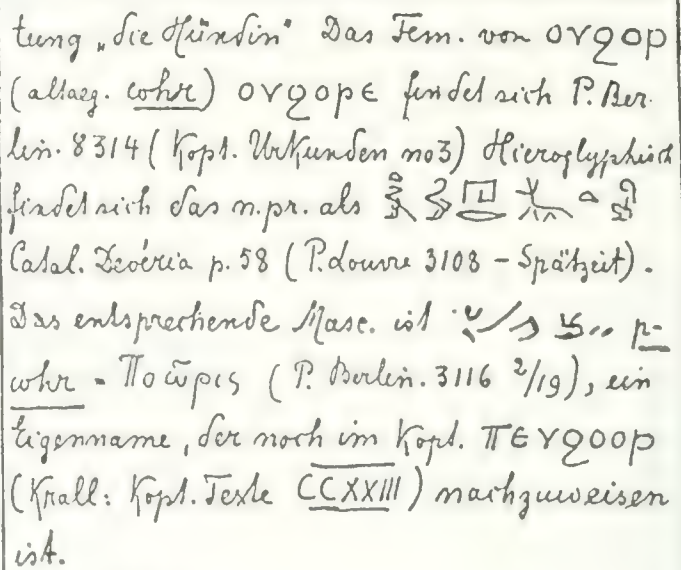 tung „die Hündin“ Das Fem. von ⲟⲩϩⲟⲣ
(altaeg. whr) ⲟⲩϩⲟⲣⲉ findet sich P. Ber-
lin. 8314 (Kopt. Urkunden no 3) Hieroglyphisch
findet sich das n. pr. als
Catal. Devéria p. 58 (P. Louvre 3108 - Spätzeit).
Das entsprechende Masc. ist p-
whr = Ποῶρις (P. Berlin. 3116 2/19), ein
Eigenname, der noch im Kopt. ⲡⲉⲩϩⲟⲟⲣ
(Krall: Kopt. Texte CCXXIII) nachzuweisen
ist.